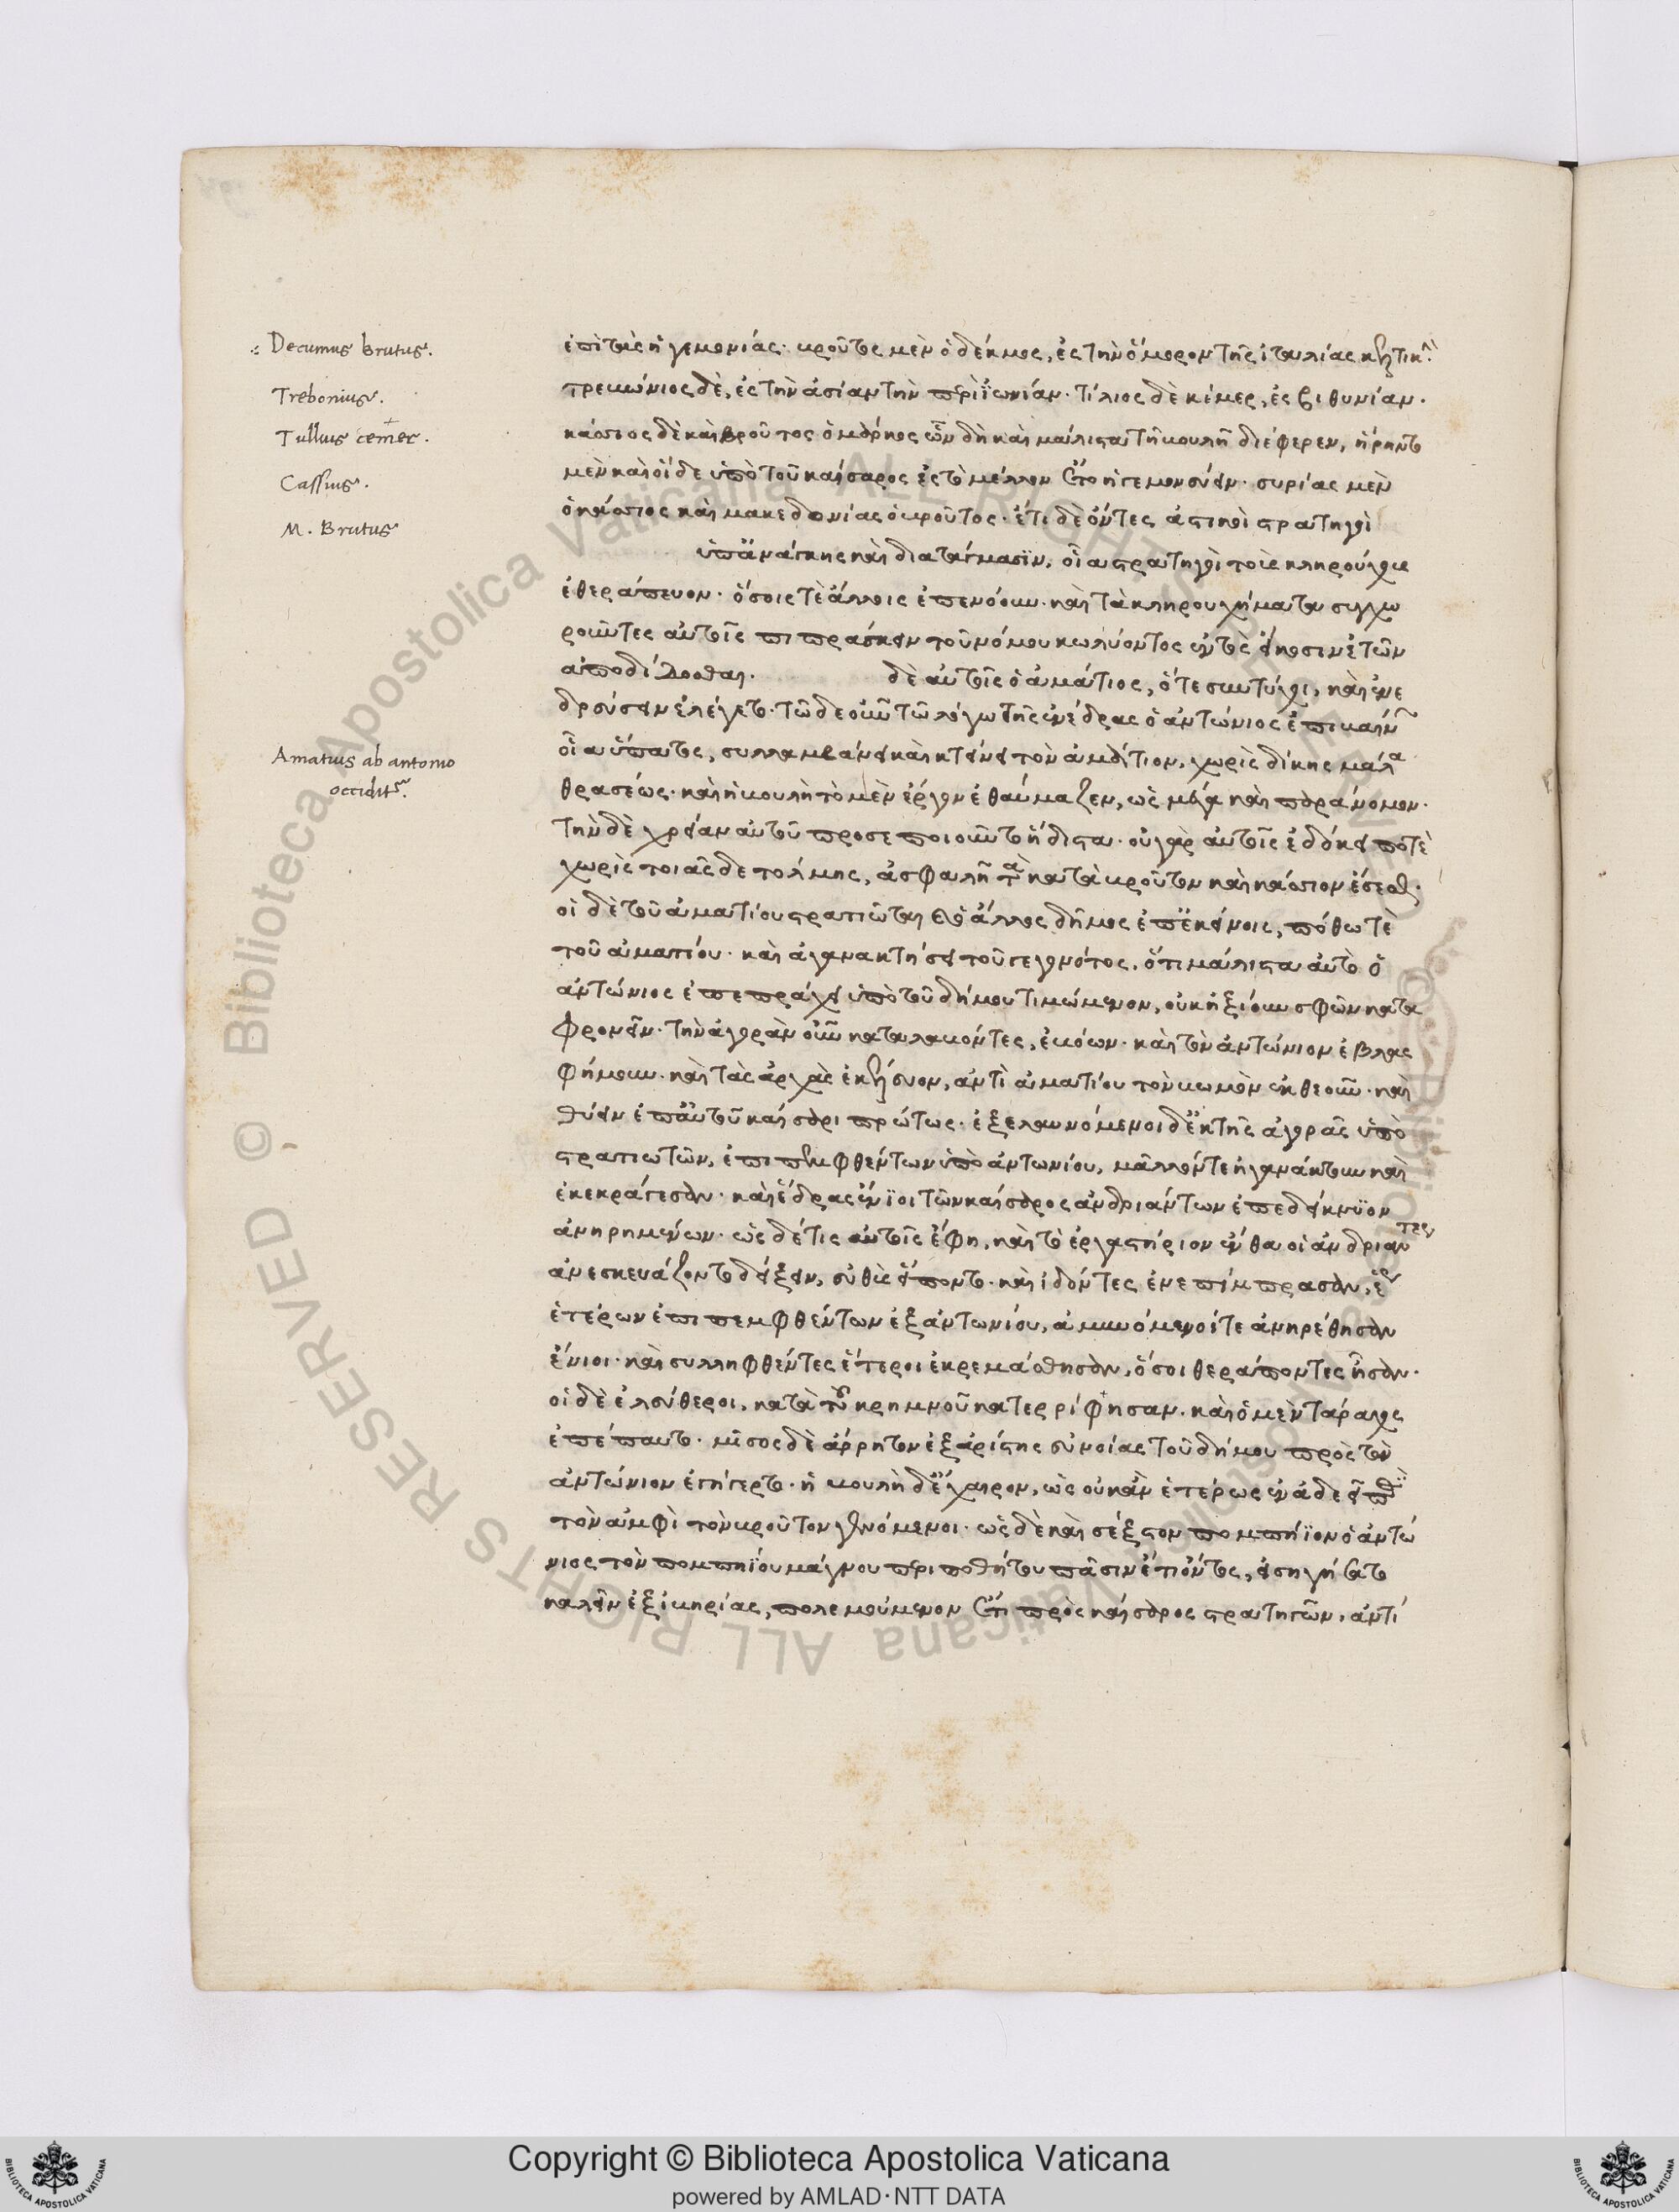 ∴ Decumus brutus.
Trebonius.
Tullius cemer.
Cassius.
M. Brutus
Amatius ab antonio
occiditr.
ἐπὶ τὰς ἡγεμονίας· βροῦτος μὲν ὁ δέκμος, ἐς τὴν ὅμορον τῆς ἰταλίας κελτικὴν
τρεβώνιος δὲ, ἐς τὴν ἀσίαν τὴν περὶ ἰωνίαν· τίλιος δὲ κίμερ, ἐς βιθυνίαν·
κάσσιος δὲ καὶ βροῦτος ὁ μάρκος ὧν δὴ καὶ μάλιστα τῆ βουλῆ διέφερεν, ἥρηντο
μὲν καὶ οἵδε ὑπὸ τοῦ καίσαρος ἐς τὸ μέλλον ἔτος ἡγεμονεύειν· συρίας μὲν
ὁ κάσσιος καὶ μακεδονίας ὁ βροῦτος· ἔτι δὲ ὄντες ἀστικοὶ στρατηγοὶ
ὑπ' ἀνάγκης καὶ διατάγμασιν, οἷα στρατηγοὶ τοὺς κληρούχους
ἐθεράπευον· ὅσοις τὲ ἄλλοις ἐπενόουν· καὶ τὰ κληρουχήματα συγχω
ροῦντες αὐτοῖς πιπράσκειν τοῦ νόμου κωλύοντος ἐντὸς εἴκοσιν ἐτῶν
ἀποδίδοσθαι. δὲ αὐτοῖς ὁ ἀμάτιος, ὅτε συντύχοι, καὶ ἐνε
δρεύσειν ἐλέγετο· τῶδε οὖν τῶ λόγω τῆς ἐνέδρας ὁ ἀντώνιος ἐπιβαίνων
οἷα ὕπατος, συλλαμβάνει καὶ κτείνει τὸν ἀμάτιον, χωρὶς δίκης μάλα
θρασέως· καὶ ἡ βουλὴ τὸ μὲν ἔργον ἐθαύμαζεν, ὡς μέγα καὶ παράνομον·
τὴν δὲ χρείαν αὐτοῦ προσεποιοῦντο ἥδιστα· οὐ γὰρ αὐτοῖς ἐδόκει ποτὲ
χωρὶς τοιᾶσδε τόλμης, ἀσφαλῆ τὰ κατὰ βροῦτον καὶ κάσσιον ἔσεσθαι·
οἱ δὲ τοῦ ἀματίου στρατιῶται καὶ ὁ ἄλλος δῆμος ἐπ' ἐκείνοις, πόθω τὲ
τοῦ ἀματίου· καὶ ἀγανακτήσει τοῦ γεγονότος, ὅτι μάλιστα αὐτὸ ὁ
ἀντώνιος ἐπεπράχει ὑπὸ τοῦ δήμου τιμώμενον, οὐκ ἠξίουν σφῶν κατα
φρονεῖν· τὴν ἀγορὰν οὖν καταλαβόντες, ἐβόων· καὶ τὸν ἀντώνιον ἐβλασ
φήμουν· καὶ τὰς ἀρχὰς ἐκέλευον, ἀντὶ ἀματίου τὸν βωμὸν ἐκθεοῦν· καὶ
θύειν ἐπ' αὐτοῦ καίσαρι πρώτους· ἐξελαυνόμενοι δ' ἐκ τῆς ἀγορᾶς ὑπὸ
στρατιωτῶν, ἐπιπεμφθέντων ὑπὸ ἀντωνίου, μᾶλλόν τε ἠγανάκτουν καὶ
ἐκεκράγεσαν· καὶ ἕδρας ἔνιοι τῶν καίσαρος ἀνδριάντων ἐπεδείκνυον
ἀνηρημένων· ὡς δέ τις αὐτοῖς ἔφη, καὶ τὸ ἐργαστήριον ἔνθα οἱ ἀνδριάντες
ἀνεσκευάζοντο δείξειν, εὐθὺς εἵποντο· καὶ ἰδόντες ἐνεπίμπρασαν, ἕως
ἑτέρων ἐπιπεμφθέντων ἐξ ἀντωνίου, ἀμυνόμενοί τε ἀνηρέθησαν
ἔνιοι· καὶ συλληφθέντες ἕτεροι ἐκρεμάσθησαν, ὅσοι θεράποντες ἦσαν·
οἱ δὲ ἐλεύθεροι, κατὰ τοῦ κρημνοῦ κατερρίφησαν· καὶ ὁ μὲν τάραχος
ἐπέπαυτο· μῖσος δὲ ἄρρητον ἐξ ἀρίστης εὐνοίας τοῦ δήμου πρὸς τὸν
ἀντώνιον ἐγήγερτο· ἡ βουλὴ δ' ἔχαιρον, ὡς οὐκ ἂν ἑτέρως ἐν ἀδεεῖ περὶ
τὸν ἀμφὶ τὸν βροῦτον γενόμενοι· ὡς δὲ καὶ σέξστον πομπήϊον ὁ ἀντώ
νιος τὸν πομπηΐου μάγνου περιποθήτου πᾶσιν ἔτι ὄντος, εἰσηγήσατο
καλεῖν ἐξ ἰβηρίας, πολεμούμενον ἔτι πρὸς καίσαρος στρατηγῶν, ἀντί